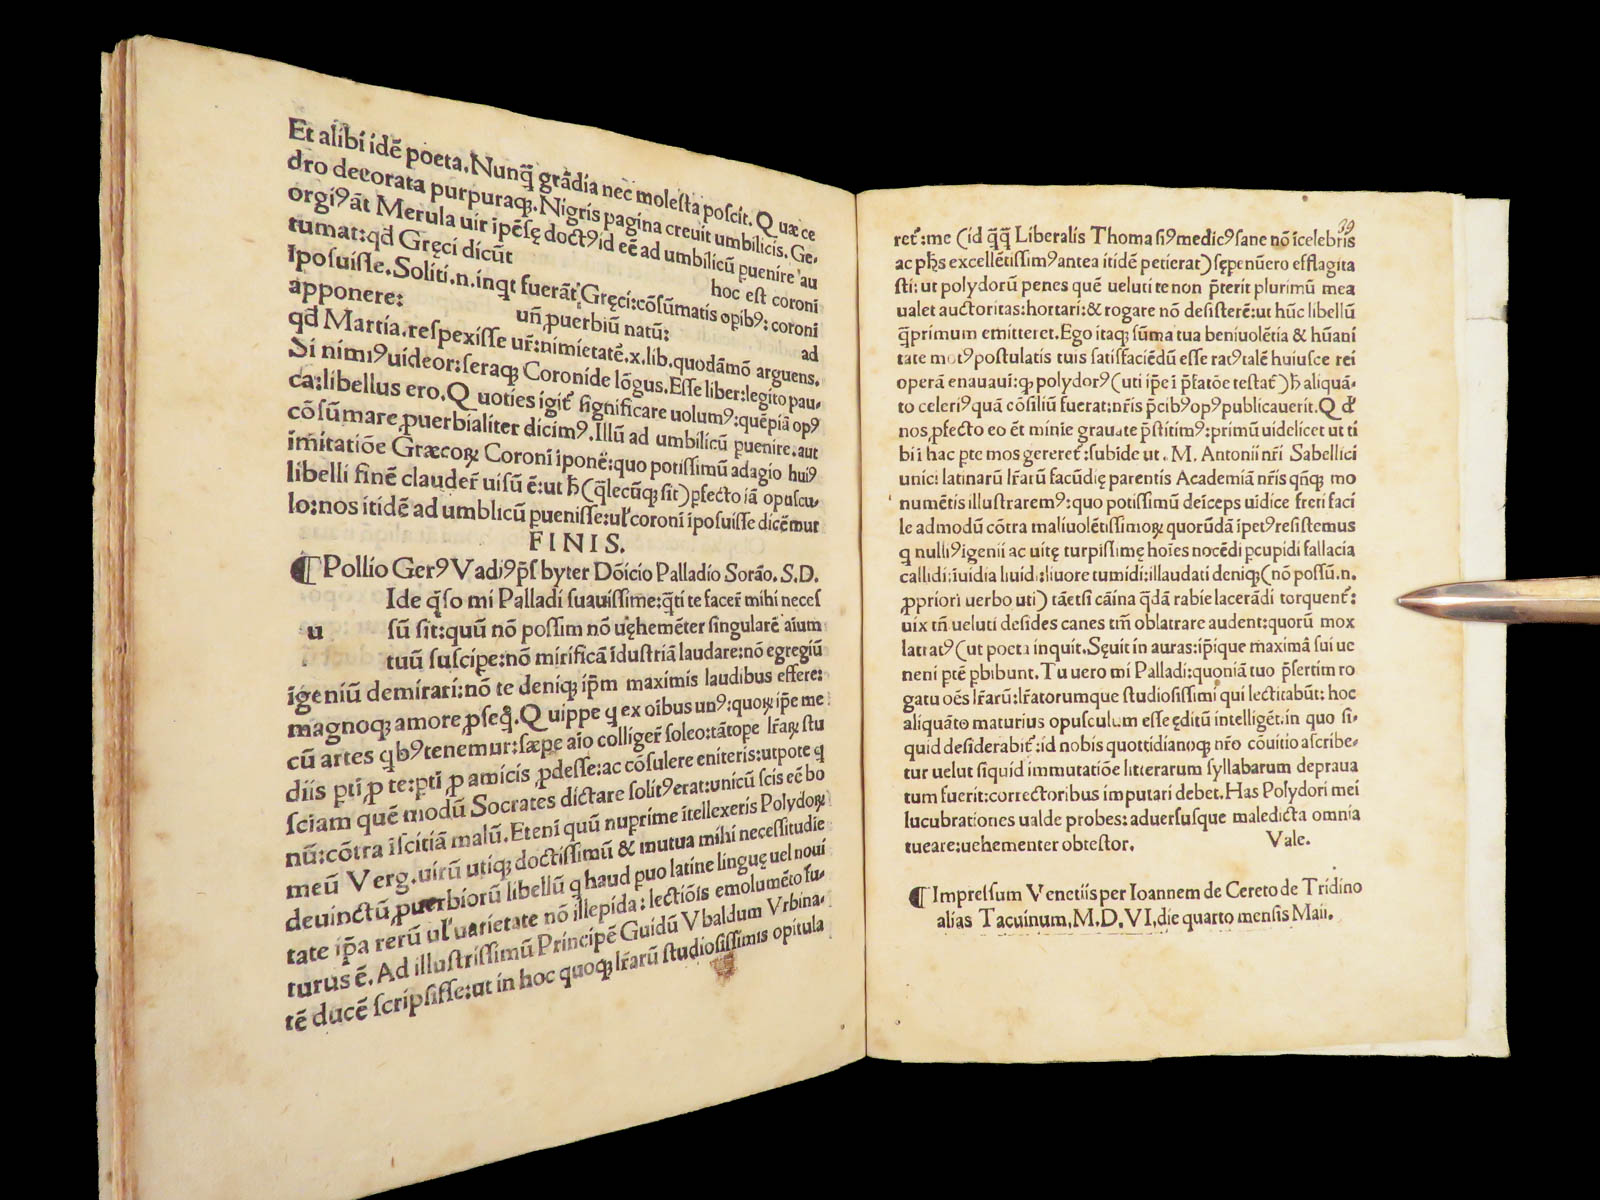 Et alibi idē poeta. Nunq̄ grādia nec molesta poscit. Quæ ce
dro decorata purpuraqꝫ. Nigris pagina creuit umbilicis. Ge-
orgiꝰ āt Merula uir ipēsę doctꝰ id eē ad umbilicū puenire au
tumat: qd̄ Gręci dicūt hoc est coroni
iposuisse. Soliti.n.inqt fuerāt Gręci: cōsūmatis opibꝰ: coroni
apponere: uñ ꝓuerbiū natū: ad
qd̄ Martia. respexisse ur̄: nimietatē. x. lib. quodāmō arguens.
Si nimiꝰ uideor: seraqꝫ Coronide lōgus. Esse liber: legito pau-
ca: libellus ero. Quoties igit̄ significare uolumꝰ: quēpiā opꝰ
cōsūmare, ꝓuerbialiter dicimꝰ. Illū ad umbilicū puenire. aut
imitatiōe Græcoꝝ Coronī iponē: quo potissimū adagio huiꝰ
libelli finē clauder̄ uisū ē: ut ħ (q̄lecūqꝫ sit) ꝑfecto iā opuscu-
lo: nos itidē ad umblicū puenisse: ul̄ coronī iposuisse dicēmur
FINIS.
¶ Pollio Gerꝰ Vadiꝰ p̄sbyter Dōicio Palladio Sorāo. S.D.
Ide q̄so mi Palladi suauissime: q̄ti te facer̄ mihi neces
u sū sit: quū nō possim nō uęhemēter singularē aīum
tuū suscipe: nō mirificā īdustriā laudare: nō egregiū
īgeniū demirari: nō te deniqꝫ ip̄m maximis laudibus efferre:
magnoqꝫ amore ꝓseq̄. Quippe q ex oībus unꝰ: quoꝝ ip̄e me
cū artes qbꝰ tenemur: sæpe aīo colliger̄ soleo: tātope lr̄aꝝ stu
diis p̄ti ꝓ te: p̄ti ꝓ amicis ꝓdesse: ac cōsulere eniteris: utpote q
sciam quē modū Socrates dictare solitꝰ erat: unicū scis eē bo
nū: cōtra īscitiā malū. Etenī quū nuprime ītellexeris Polydoꝝ
meū Verg. uirū utiqꝫ doctissimū & mutua mihi necessitudie
deuinctū ꝓuerbiorū libellū q haud puo latine linguę uel noui
tate ip̄a rerū ul̄ uarietate nō illepida: lectiōis emolumēto fu-
turus ē. Ad illustrissimū Principē Guidū Vbaldum Vrbina-
tē ducē scripsisse: ut in hoc quoqꝫ lr̄arū studiosissimis opitula
39
ret̄: me (id q̄q̄ Liberalis Thomasiꝰ medicꝰ sane nō īcelebris
ac pħs excellētissimꝰ antea itidē petierat) sępenūero efflagita
sti: ut polydorū penes quē ueluti te non p̄terit plurimū mea
ualet auctoritas: hortari: & rogare nō desisterē: ut hūc libellū
q̄primum emitteret. Ego itaqꝫ sūma tua beniuolētia & hūani
tate motꝰ postulatis tuis satisfaciēdū esse ratꝰ talē huiusce rei
operā enauaui: qꝫ polydorꝰ (uti ip̄e ī p̄fatōe testat̄) ħ aliquā-
to celeriꝰ quā cōsiliū fuerat: nr̄is p̄cibꝰ opꝰ publicauerit. Qd̄
nos ꝓfecto eo ēt minie grauate p̄stitimꝰ: primū uidelicet ut ti
bi ī hac pte mos gereret̄: subide ut. M. Antonii nr̄i Sabellici
unici latinarū lr̄arū facūdię parentis Academiā nr̄is qn̄qꝫ mo
numētis illustraremꝰ: quo potissimū deīceps uidice freti faci
le admodū cōtra maliuolētissimoꝝ quorūdā īpetꝰ resistemus
q nulliꝰ igenii ac uitę turpissimę hoīes nocēdi pcupidi fallacia
callidi: īuidia liuidi: liuore tumidi: illaudati deniqꝫ (nō possū.n.
ꝓpriori uerbo uti) tāetsi cāina q̄dā rabie lacerādi torquent̄:
uix tn̄ ueluti desides canes tm̄ oblatrare audent: quorū mox
latratꝰ (ut poeta inquit. Sęuit in auras: ip̄ique maximā sui ue
neni ptē pbibunt. Tu uero mi Palladi: quoniā tuo p̄sertim ro
gatu oēs lr̄arū: lr̄atorumque studiosissimi qui lectitabūt: hoc
aliquāto maturius opusculum esse ęditū intelligēt. in quo si-
quid desiderabit̄: id nobis quottidianoqꝫ nr̄o cōuitio ascribe-
tur uelut siquid immutatiōe litterarum syllabarum deprаua
tum fuerit: correctoribus imputari debet. Has Polydori mei
lucubrationes ualde probes: aduersusque maledicta omnia
tueare: uehementer obtestor. Vale.
¶ Impressum Venetiis per Ioannem de Cereto de Tridino
alias Tacuinum. M.D.VI. die quarto mensis Maii.